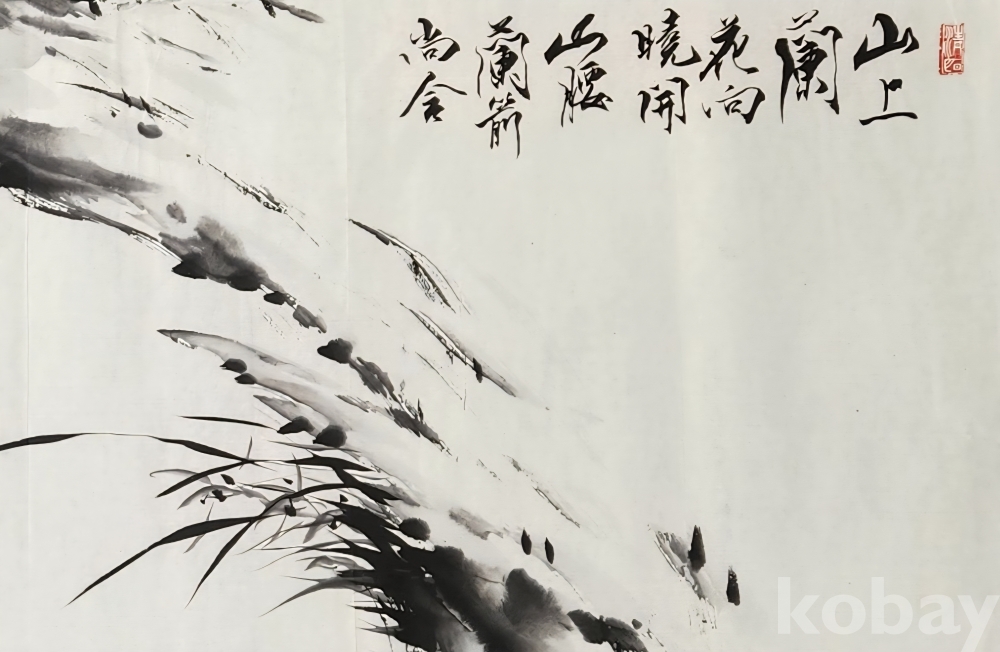 山上
蘭
花向
曉開
山腰
蘭箭
尚含
kobay